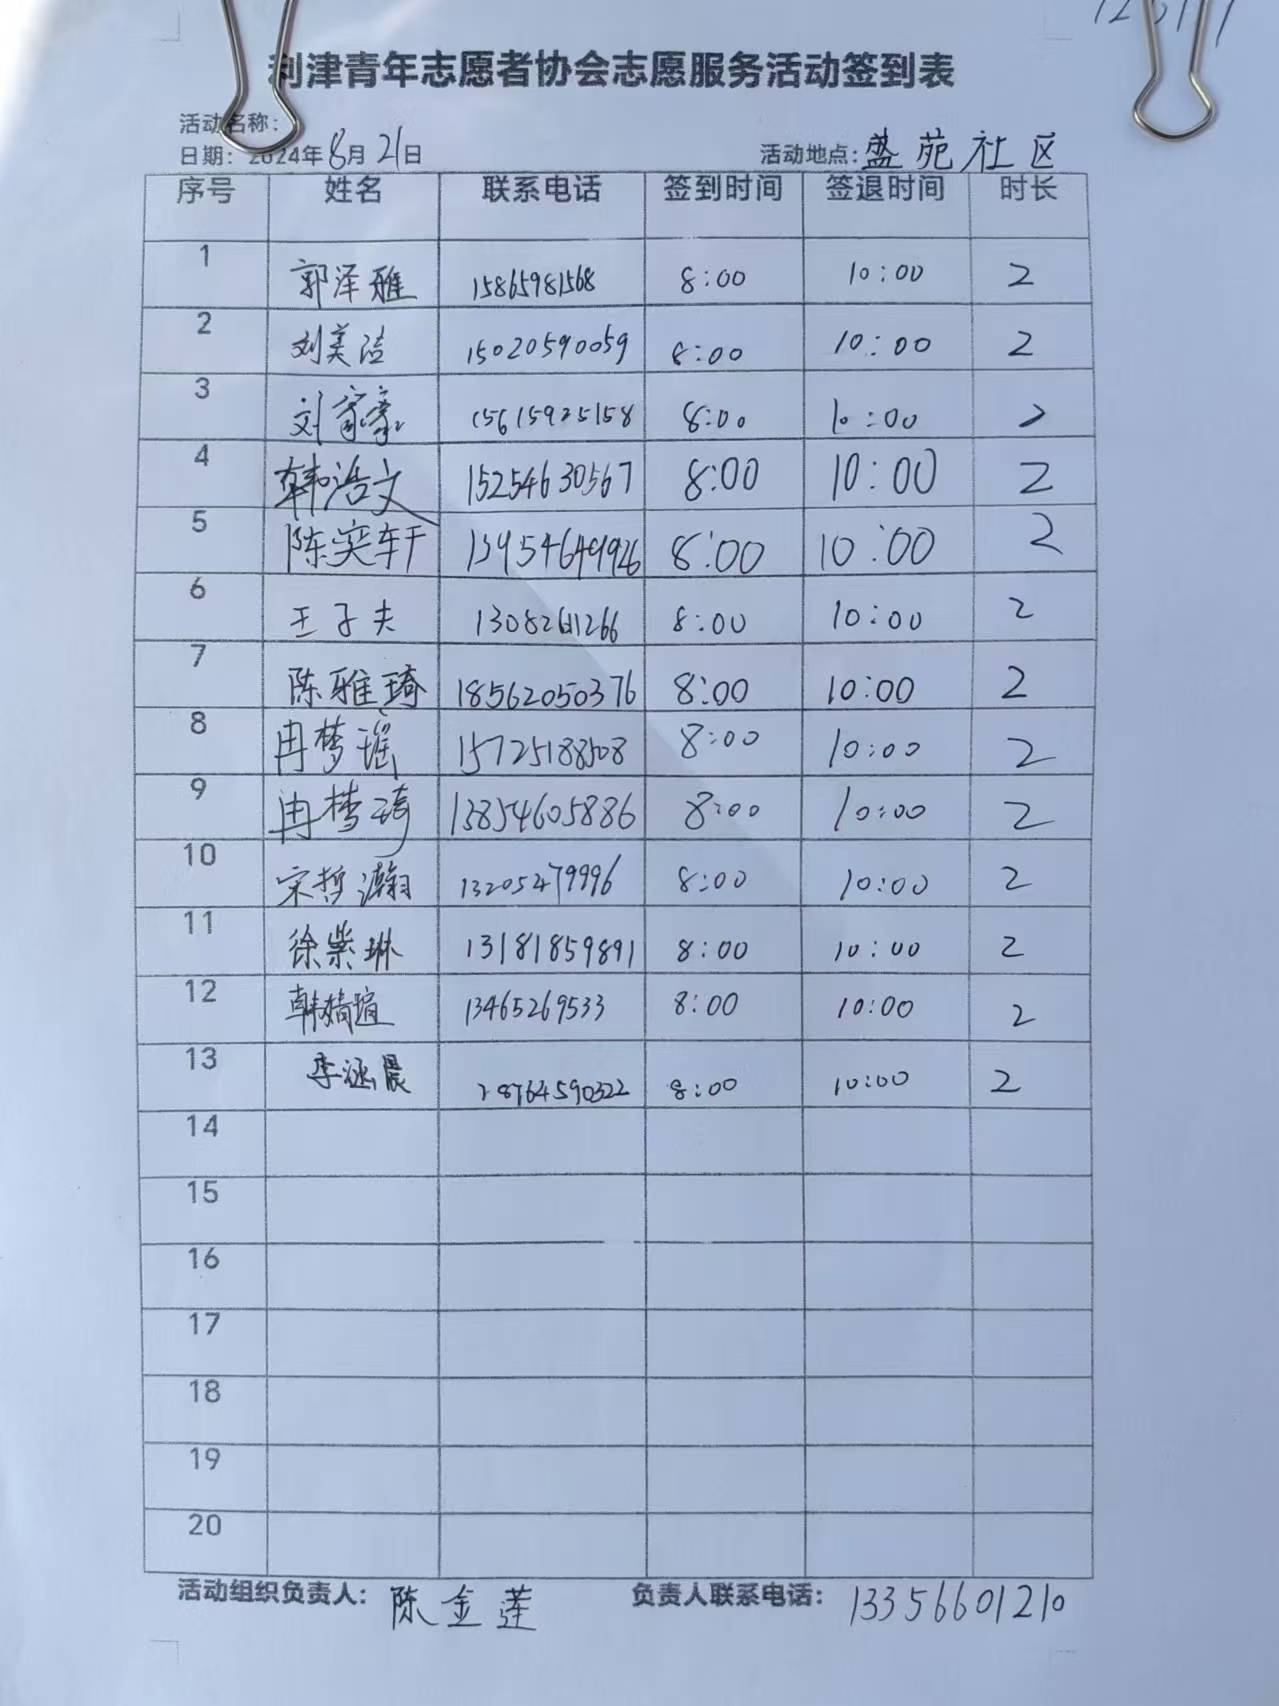 利津青年志愿者协会志愿服务活动签到表
活动名称:
日期: 2024年8月21日 活动地点:盛苑社区
序号 姓名 联系电话 签到时间 签退时间 时长
1 郭泽雅 15865981568 8:00 10:00 2
2 刘美洁 15020590059 8:00 10:00 2
3 刘家豪 15615925158 8:00 10:00 2
4 韩浩文 15254630567 8:00 10:00 2
5 陈奕轩 13954649926 8:00 10:00 2
6 王子夫 8:00 10:00 2
7 陈雅琦 18562050376 8:00 10:00 2
8 冉梦瑶 15725188508 8:00 10:00 2
9 冉梦琦 13854605886 8:00 10:00 2
10 宋哲瀚 13205479996 8:00 10:00 2
11 徐紫琳 13181859891 8:00 10:00 2
12 13465269533 8:00 10:00 2
13 李涵晨 8:00 10:00 2
14
15
16
17
18
19
20
活动组织负责人: 陈金莲 负责人联系电话: 13356601210